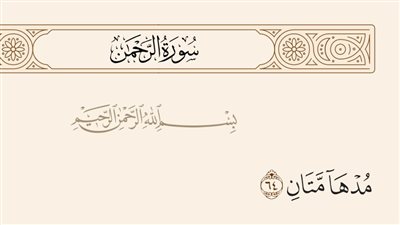 سُورَةُ الرَّحْمَٰن
بِسْمِ اللَّهِ الرَّحْمَٰنِ الرَّحِيمِ
مُدْهَآمَّتَانِ ٦٤